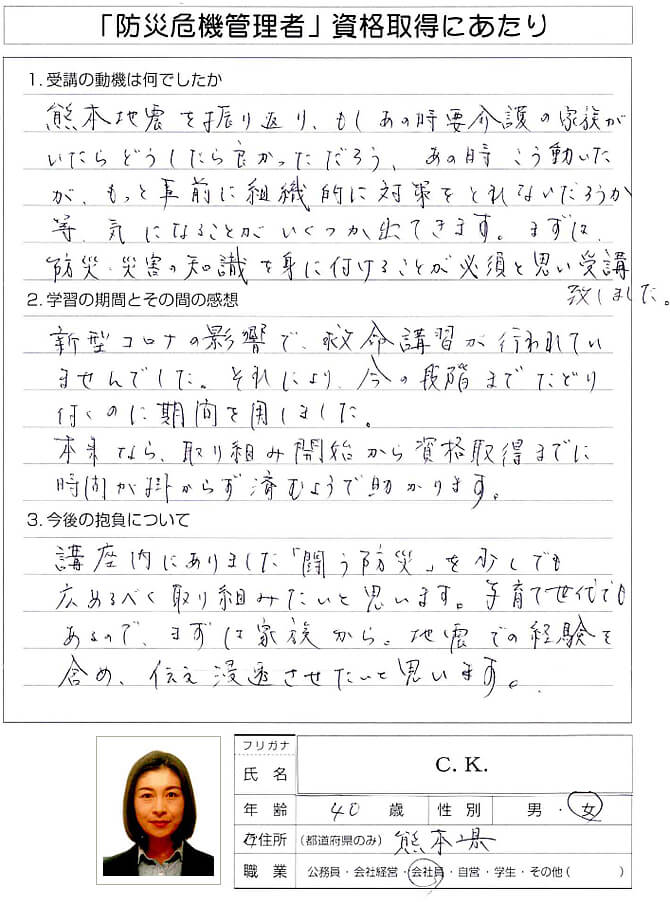 「防災危機管理者」資格取得にあたり
1. 受講の動機は何でしたか
熊本地震を振り返り、もしあの時要介護の家族が
いたらどうしたら良かっただろう、あの時こう動いた
が、もっと事前に組織的に対策をとれないだろうか
等、気になることがいくつか出てきます。まずは、
防災・災害の知識を身に付けることが必須と思い受講
致しました。
2. 学習の期間とその間の感想
新型コロナの影響で、救命講習が行われてい
ませんでした。それにより、今の段階までたどり
付くのに期間を用しました。
本来なら、取り組み開始から資格取得までに
時間が掛からず済むようで助かります。
3. 今後の抱負について
講座内にありました「闘う防災」を少しでも
広めるべく取り組みたいと思います。子育て世代でも
あるので、まずは家族から。地震での経験を
含め、伝え浸透させたいと思います。
フリガナ
氏名 C. K.
年齢 40 歳 性別 男・女
住所 (都道府県のみ) 熊本県
職業 公務員・会社経営・会社員・自営・学生・その他( )